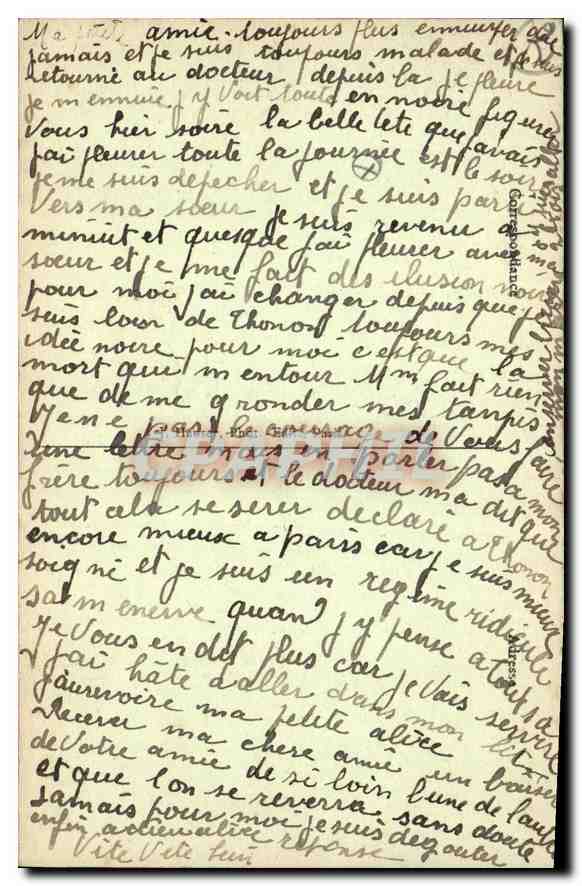 Ma petite amie. toujours plus ennuyer que
jamais et je suis toujours malade et je suis
Retourné au docteur depuis la je fleure
je m ennuie j y Voit toute en noire figurer
Vous hier soire la belle tete que j avais
j ai fleurer toute la journée est le soir
je me suis depecher et je suis parti
Vers ma sœur je suis revenu a
minuit et quesque j ai fleurer avec
sœur et je me fait des ilusion noire
pour moi j ai changer depuis que je
suis loin de Thonon toujours mes
idée noire pour moi c est que la
mort qui m entour Mm fait rien
que de me gronder mes tanpis
Je ne pas de Vous faire
une lettre mais en parler pas a mon
frère toujours et le docteur ma dit que
tout cela se serer declaré a Thonon
encore mieux a paris car je suis mieux
soigné et je suis un regime ridicule
sa m enerve quand j y pense a tout sa
Je Vous en dit plus car je Vais servire
j ai hâte d aller dans mon lit
j aurevoire ma petite alice
Recever ma chere amie un baiser
de Votre amie de si loin l une de l autre
et que l on se reverra sans doute
jamais pour moi je suis degouter
enfin adieu alice reponse
Vite Vite
Correspondance
Adresse